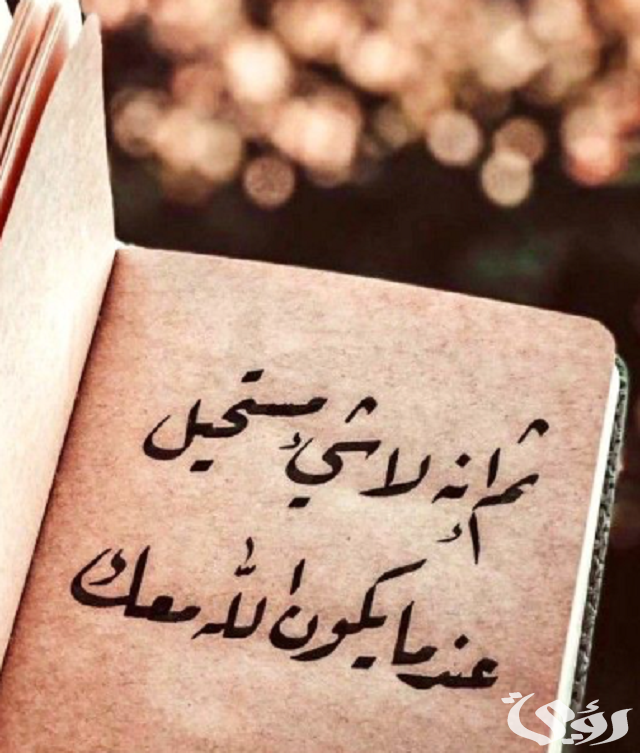 ثم إنه لا شيء مستحيل
عندما يكون الله معك
رؤية